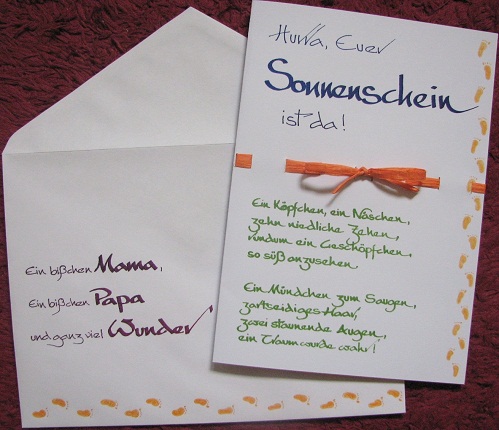 Hurra, Euer
Sonnenschein
ist da!
Ein Köpfchen, ein Näschen,
zehn niedliche Zehen,
rundum ein Geschöpfchen,
so süß anzusehen.
Ein Mündchen zum Saugen,
zartseidiges Haar,
zwei staunende Augen,
ein Traum wurde wahr!
Ein bißchen Mama,
Ein bißchen Papa
und ganz viel Wunder